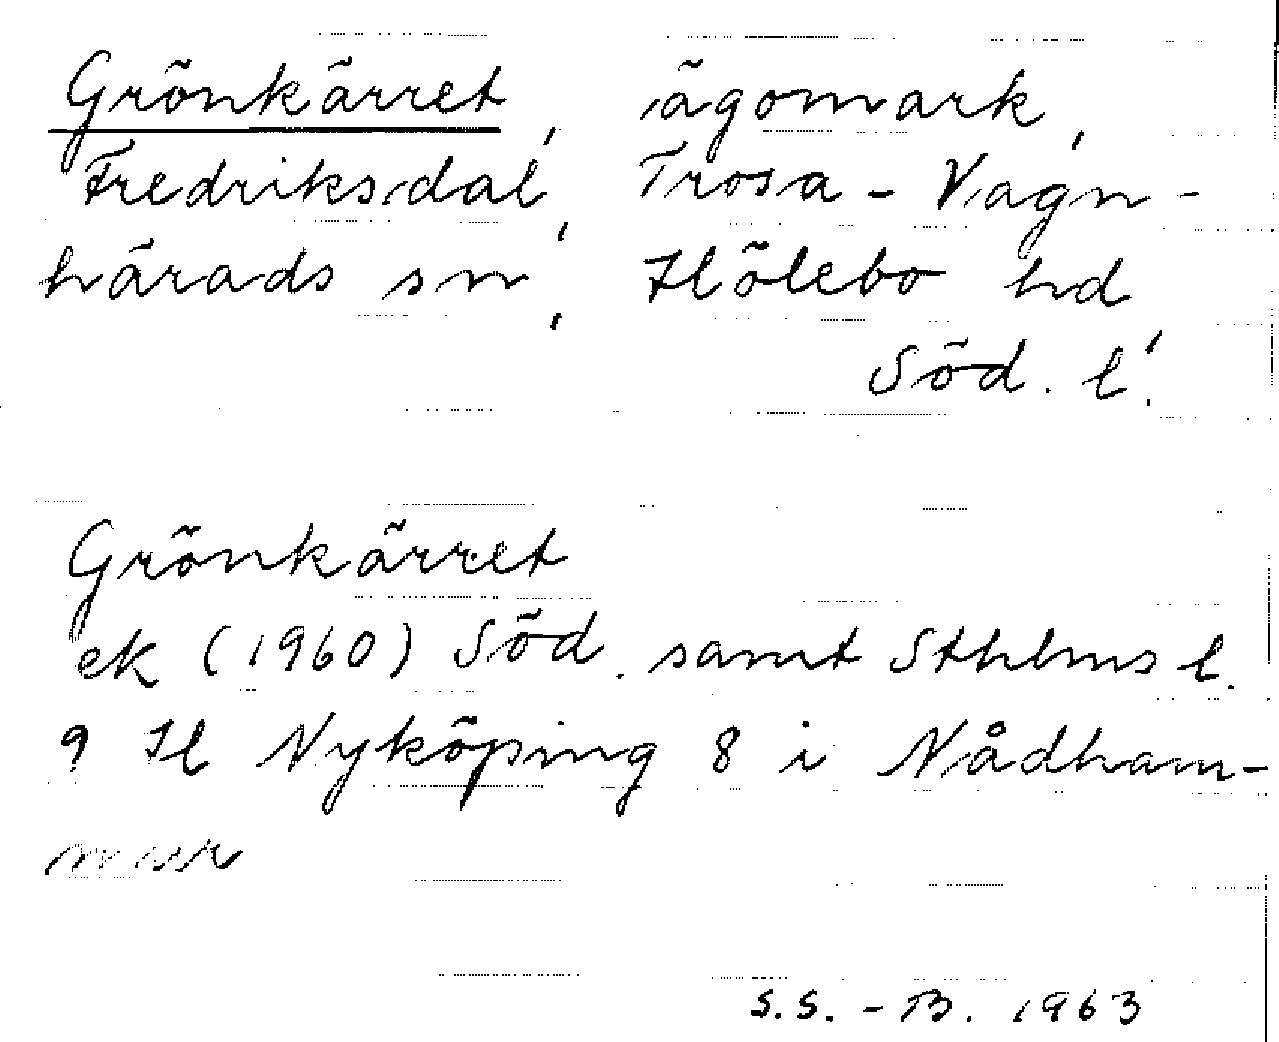 Grönkärret, ägomark,
Fredriksdal, Trosa-Vagn-
härads sn, Hölebo hd
Söd. l.
Grönkärret
ek (1960) Söd. samt Sthlms l.
9 H Nyköping 8 i Nådham-
mar
S.S.-B. 1963